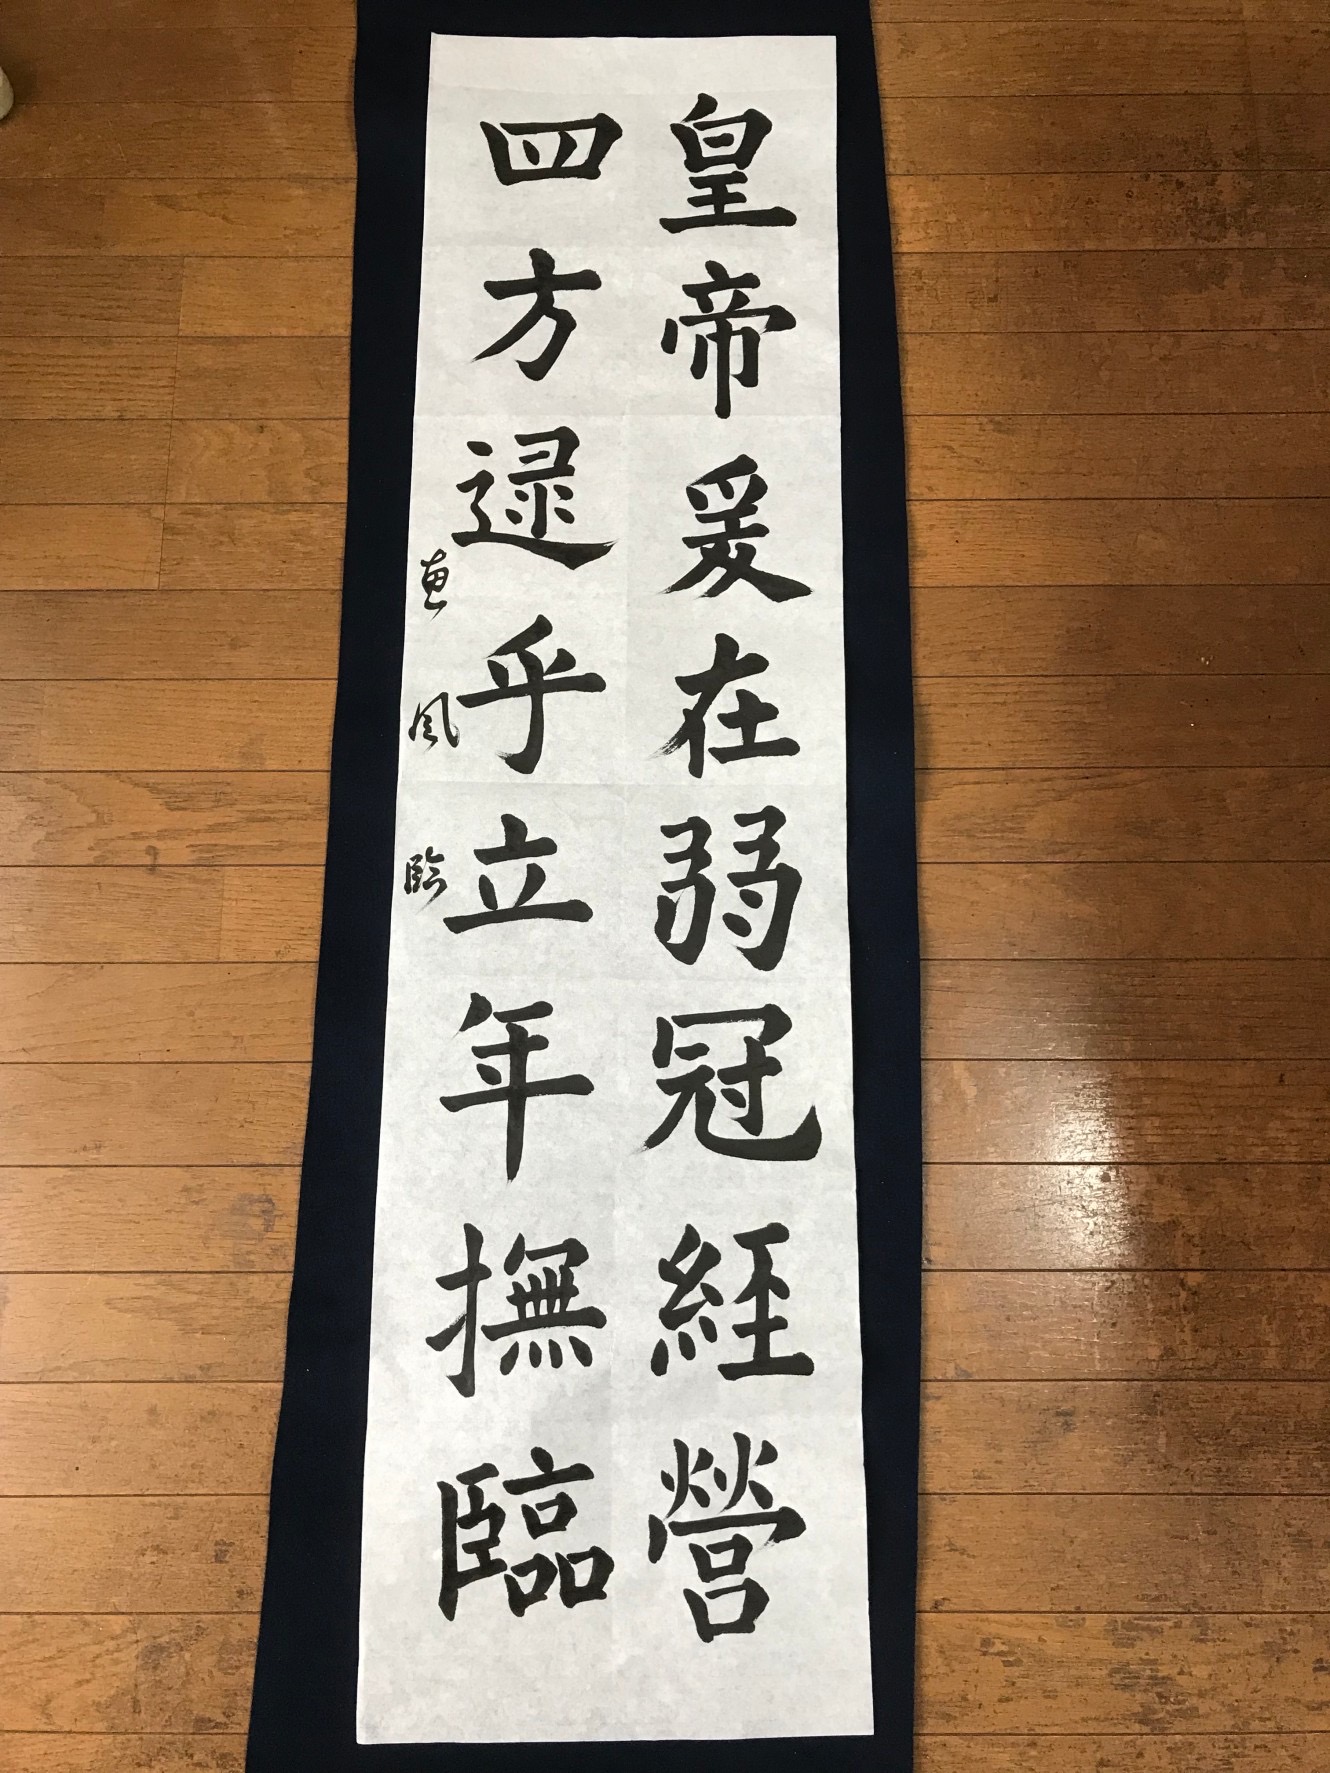 皇帝爰在弱冠經營
四方逯乎立年撫臨
恵風臨